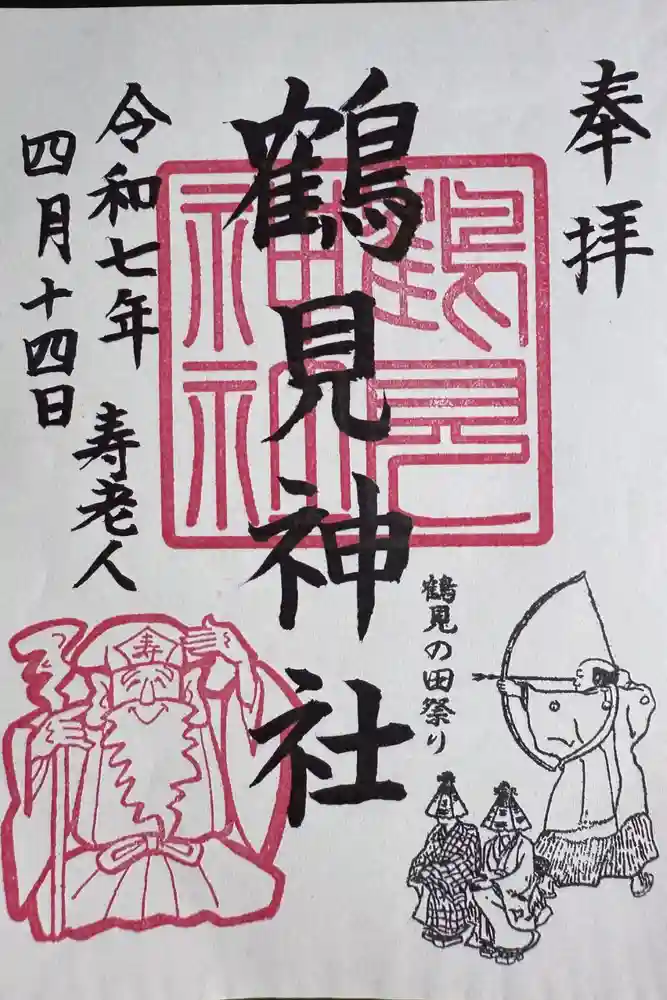 奉拝
鶴見神社
鶴見神社
鶴見の田祭り
令和七年 寿老人
四月十四日
寿